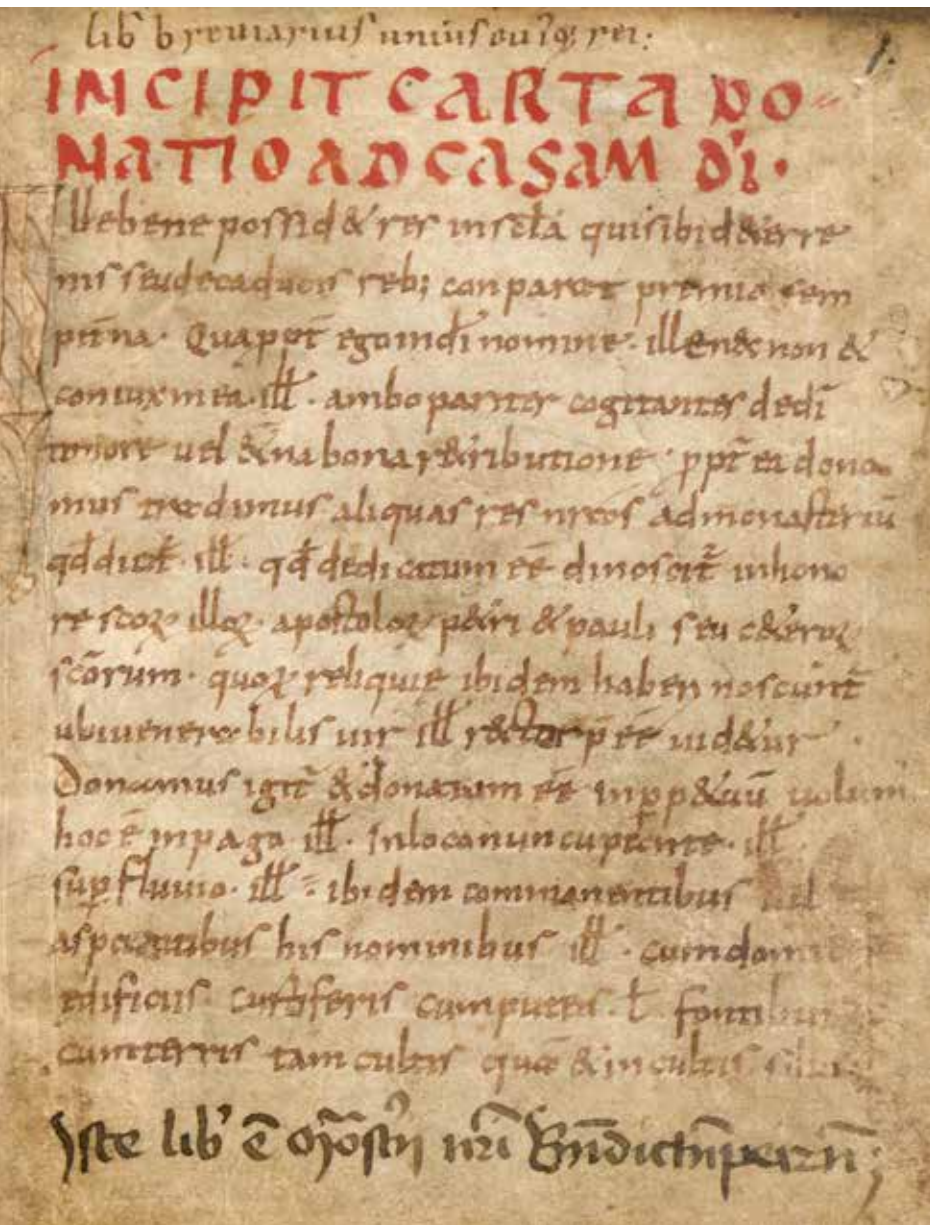 lib' breviarius unius cuiq; rei:
1.
INCIPIT CARTA DO
NATIO AD CASAM DI.
Ille bene possid& res in sclā qui sibi d& terre
nis seu de caducis reb; conparat premia sem
pitna. Quappt ego in di nomine. ill. en& non &
coniux mea. ill. ambo pariter cogitantes de di
timore vel &na bona r&ributione. ppt ea dona
mus tradimus aliquas res nras ad monasteriū
qd dict. ill. qd dedicatum eē dinoscit in hono
re scoꝝ illoꝝ. apostoloꝝ p&ri & pauli seu c&eroꝝ
scōrum. quoꝝ reliquie ibidem haberi noscunt
ubi venerabilis vir ill rector pēē vid&ur
Donamus igit & donatum eē inpp&uū volum
hoc ē in pago ill. In loca nuncupante. ill
sup fluvio. ill. ibidem commanentibus vel
aspicientibus his nominibus ill. cum dom
edificiis curtiferis cum puteis. l fontibus
cum terris tam cultis quā & incultis silvis
Iste lib' ē Mōstii nri Bndictnpeirn;